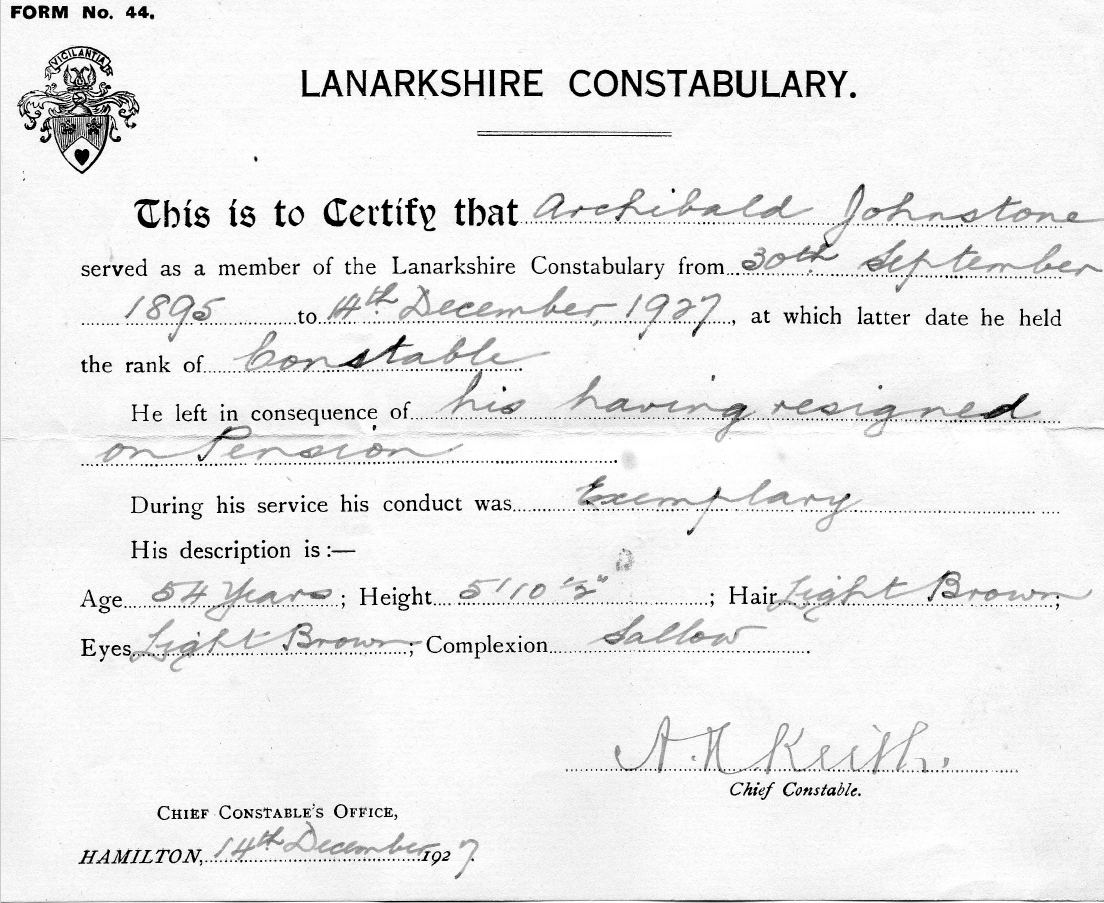 FORM No. 44.
VIGILANTIA
LANARKSHIRE CONSTABULARY.
This is to Certify that Archibald Johnstone
served as a member of the Lanarkshire Constabulary from 30th September
1895 to 14th December, 1927, at which latter date he held
the rank of Constable
He left in consequence of his having resigned
on Pension
During his service his conduct was Exemplary
His description is :—
Age 54 Years ; Height 5' 10 1/2" ; Hair Light Brown ;
Eyes Light Brown ; Complexion Sallow .
A. N Keith.
Chief Constable.
CHIEF CONSTABLE'S OFFICE,
HAMILTON, 14th December 1927.